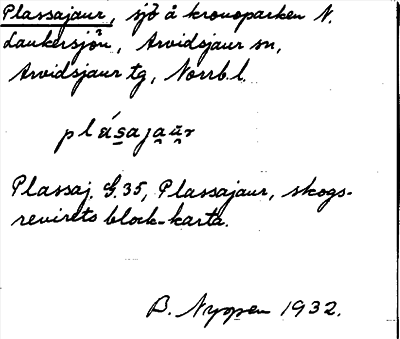 Plassajaur, sjö å kronoparken N.
Laukersjön, Arvidsjaur sn,
Arvidsjaur tg, Norrb. l.
plásajau̯r
Plassaj. G. 35, Plassajaur, skogs-
revirets block-karta.
B. Nyqpen 1932.